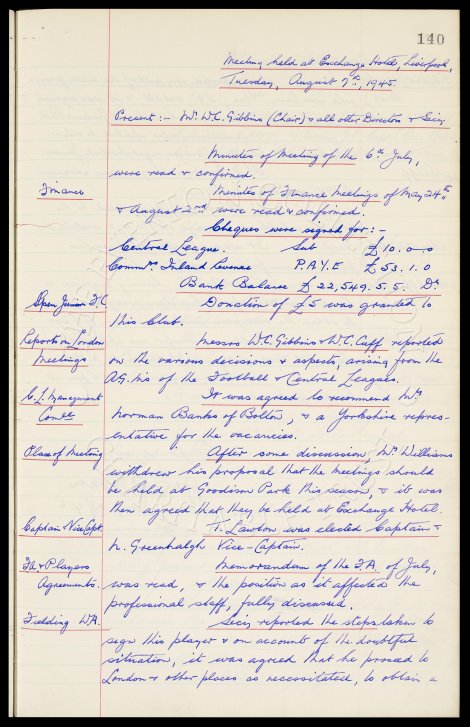 140
Meeting held at Exchange Hotel, Liverpool,
Tuesday, August 7th, 1945.
Present :- Mr. W.C. Gibbins (Chair) & all other Directors & Secy.
Minutes of Meeting of the 6th July,
were read & confirmed.
Finance
Minutes of Finance Meetings of May 24th
& August 2nd were read & confirmed.
Cheques were signed for :-
Central League. Sub £10. 0. 0
Commrs Inland Revenue P.A.Y.E £53. 1. 0
Bank Balance £22,549. 5. 5. Dr
Open Junior F.C
Donation of £5 was granted to
this Club.
Reports on London
Meetings
Messrs W.C. Gibbins & W.C. Cuff reported
on the various decisions & aspects, arising from the
A.G. Ms of the Football & Central Leagues.
C.L. Management
Comtte
It was agreed to recommend Mr
Norman Banks of Bolton, & a Yorkshire repres-
entative for the vacancies.
Place of Meeting
After some discussion, Mr Williams
withdrew his proposal that the meetings should
be held at Goodison Park this season, & it was
then agreed that they be held at Exchange Hotel.
Captain & Vice Capt.
T. Lawton was elected Captain &
N. Greenhalgh Vice-Captain.
F.A & Players
Agreements.
Memorandum of the F.A. of July,
was read, & the position as it affected the
professional staff, fully discussed.
Fielding W.A.
Secy reported the steps taken to
sign this player & on account of the doubtful
situation, it was agreed that he proceed to
London & other places as necessitated, to obtain a